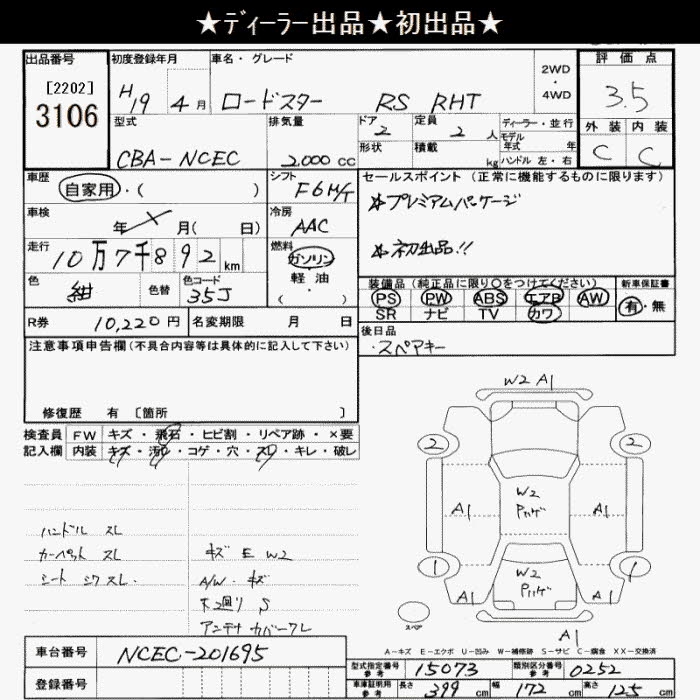 ★ディーラー出品★初出品★
出品番号 初度登録年月 車名・グレード 評価点
[2202]
3106
H19年 4月 ロードスター RS RHT
2WD・4WD
3.5
型式 排気量 ドア 定員 ディーラー・並行 外装 内装
CBA-NCEC 2,000 cc 2 2人 モデル年式 年 C C
形状 積載 kg ハンドル 左・右
車歴 シフト セールスポイント(正常に機能するものに限ります)
自家用・( ) F6M/T ☆プレミアムパッケージ
車検 冷房
年 月( 日) AAC
走行 燃料 ☆初出品!!
10万7千892km ガソリン
軽油
・( )
色 色替 色コード
紺 35J
装備品(純正品に限り○をつけてください) 新車保証書
PS PW ABS エアB AW 有・無
SR ナビ TV カワ
R券 10,220円 名変期限 月 日
後日品
・スペアキー
注意事項申告欄(不具合内容等は具体的に記入して下さい)
修復歴 有 [箇所 ]
検査員 FW キズ・飛石・ヒビ割・リペア跡・×要
記入欄 内装 キズ・汚れ・コゲ・穴・スレ・キレ・破レ
W2 A1
2 2
A1 W2 Pカゲ A1
1 W2 Pカゲ 1
A1 A1
スペア
A1
ハンドル スレ
カーペット スレ キズ E W2
シート シワ スレ. A/W・キズ
下廻り S
アンテナ カバークレ
A-キズ E-エクボ U-凹み W-補修跡 S-サビ C-腐食 XX-交換済
車台番号 NCEC-201695
登録番号
型式指定番号 参考 15073 類別区分番号 参考 0252
車庫証明用 参考 長さ 399 cm 幅 172 cm 高さ 125 cm